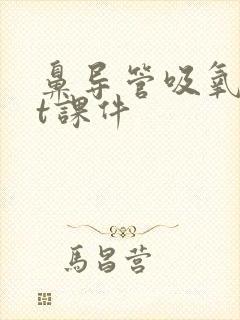 鼻导管吸氧
t課件
馬昌营